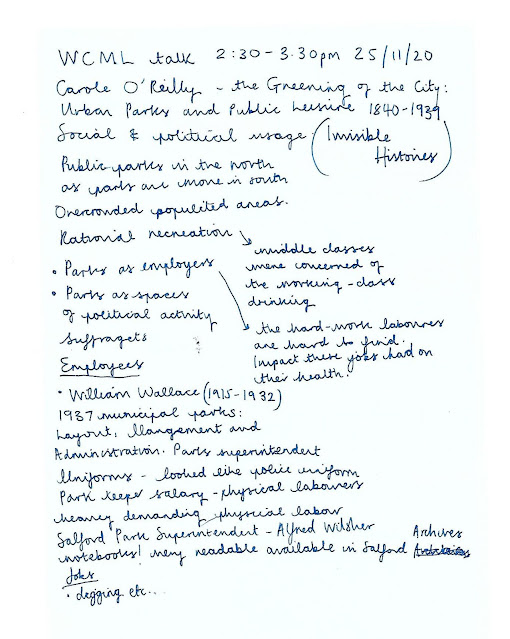 WCML talk 2:30-3.30pm 25/11/20
Carole O'Reilly - the Greening of the City:
Urban Parks and Public Leisure 1840-1939
Social & political usage (Invisible
Histories)
Public parks in the north
as parks are more in south
Overcrowded populited areas.
Rational recreation
middle classes
were concerned of
the working-class
drinking
• Parks as employers
• Parks as spaces
of political activity
suffragets
the hard-work laboures
are hard to find.
Impact these jobs had on
their health.
Employees
• William Wallace (1915-1932)
1937 municipal parks:
Layout, Mangement and
Administration. Parks superintendent
Uniforms - looked like police uniform
Park keeper salary - physical labourers
heavey demanding physical labour
Salford Park Superintendent - Alfred Wilsher
notebooks! very readable available in Salford Archives
Jobs
• digging etc...